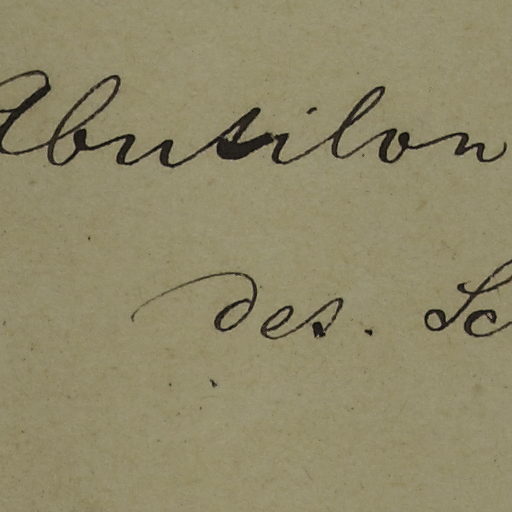 Abutilon
des. Sc